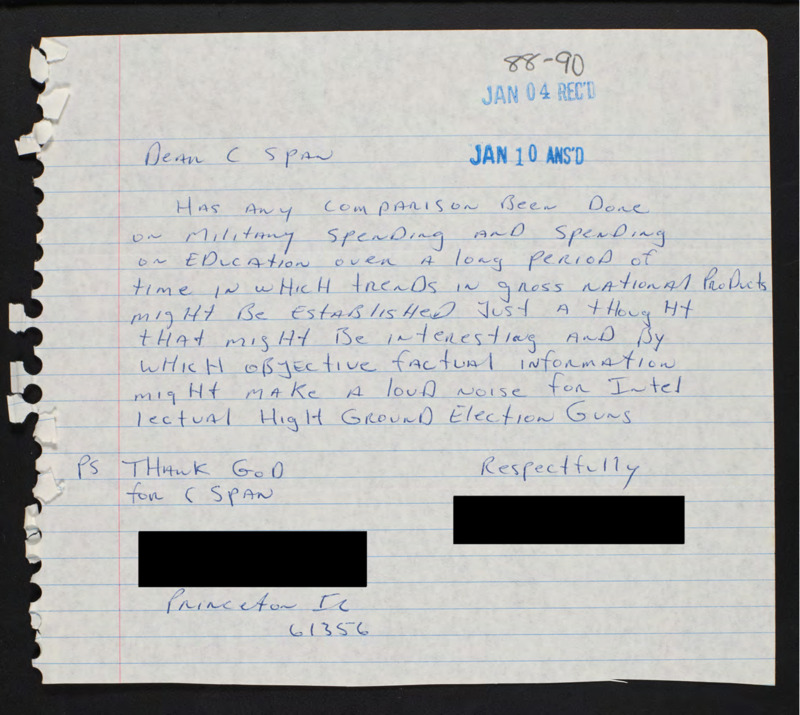 88-90
JAN 04 REC'D
Dear C Span
JAN 10 ANS'D
Has any comparison Been Done
on Military Spending and Spending
on Education over a long period of
time in which trends in gross national Products
might Be Established Just a thought
that might Be interesting and By
which objective factual information
might make a loud noise for Intel
lectual High Ground Election Guns
PS Thank God
for C Span
Respectfully
Princeton IL
61356